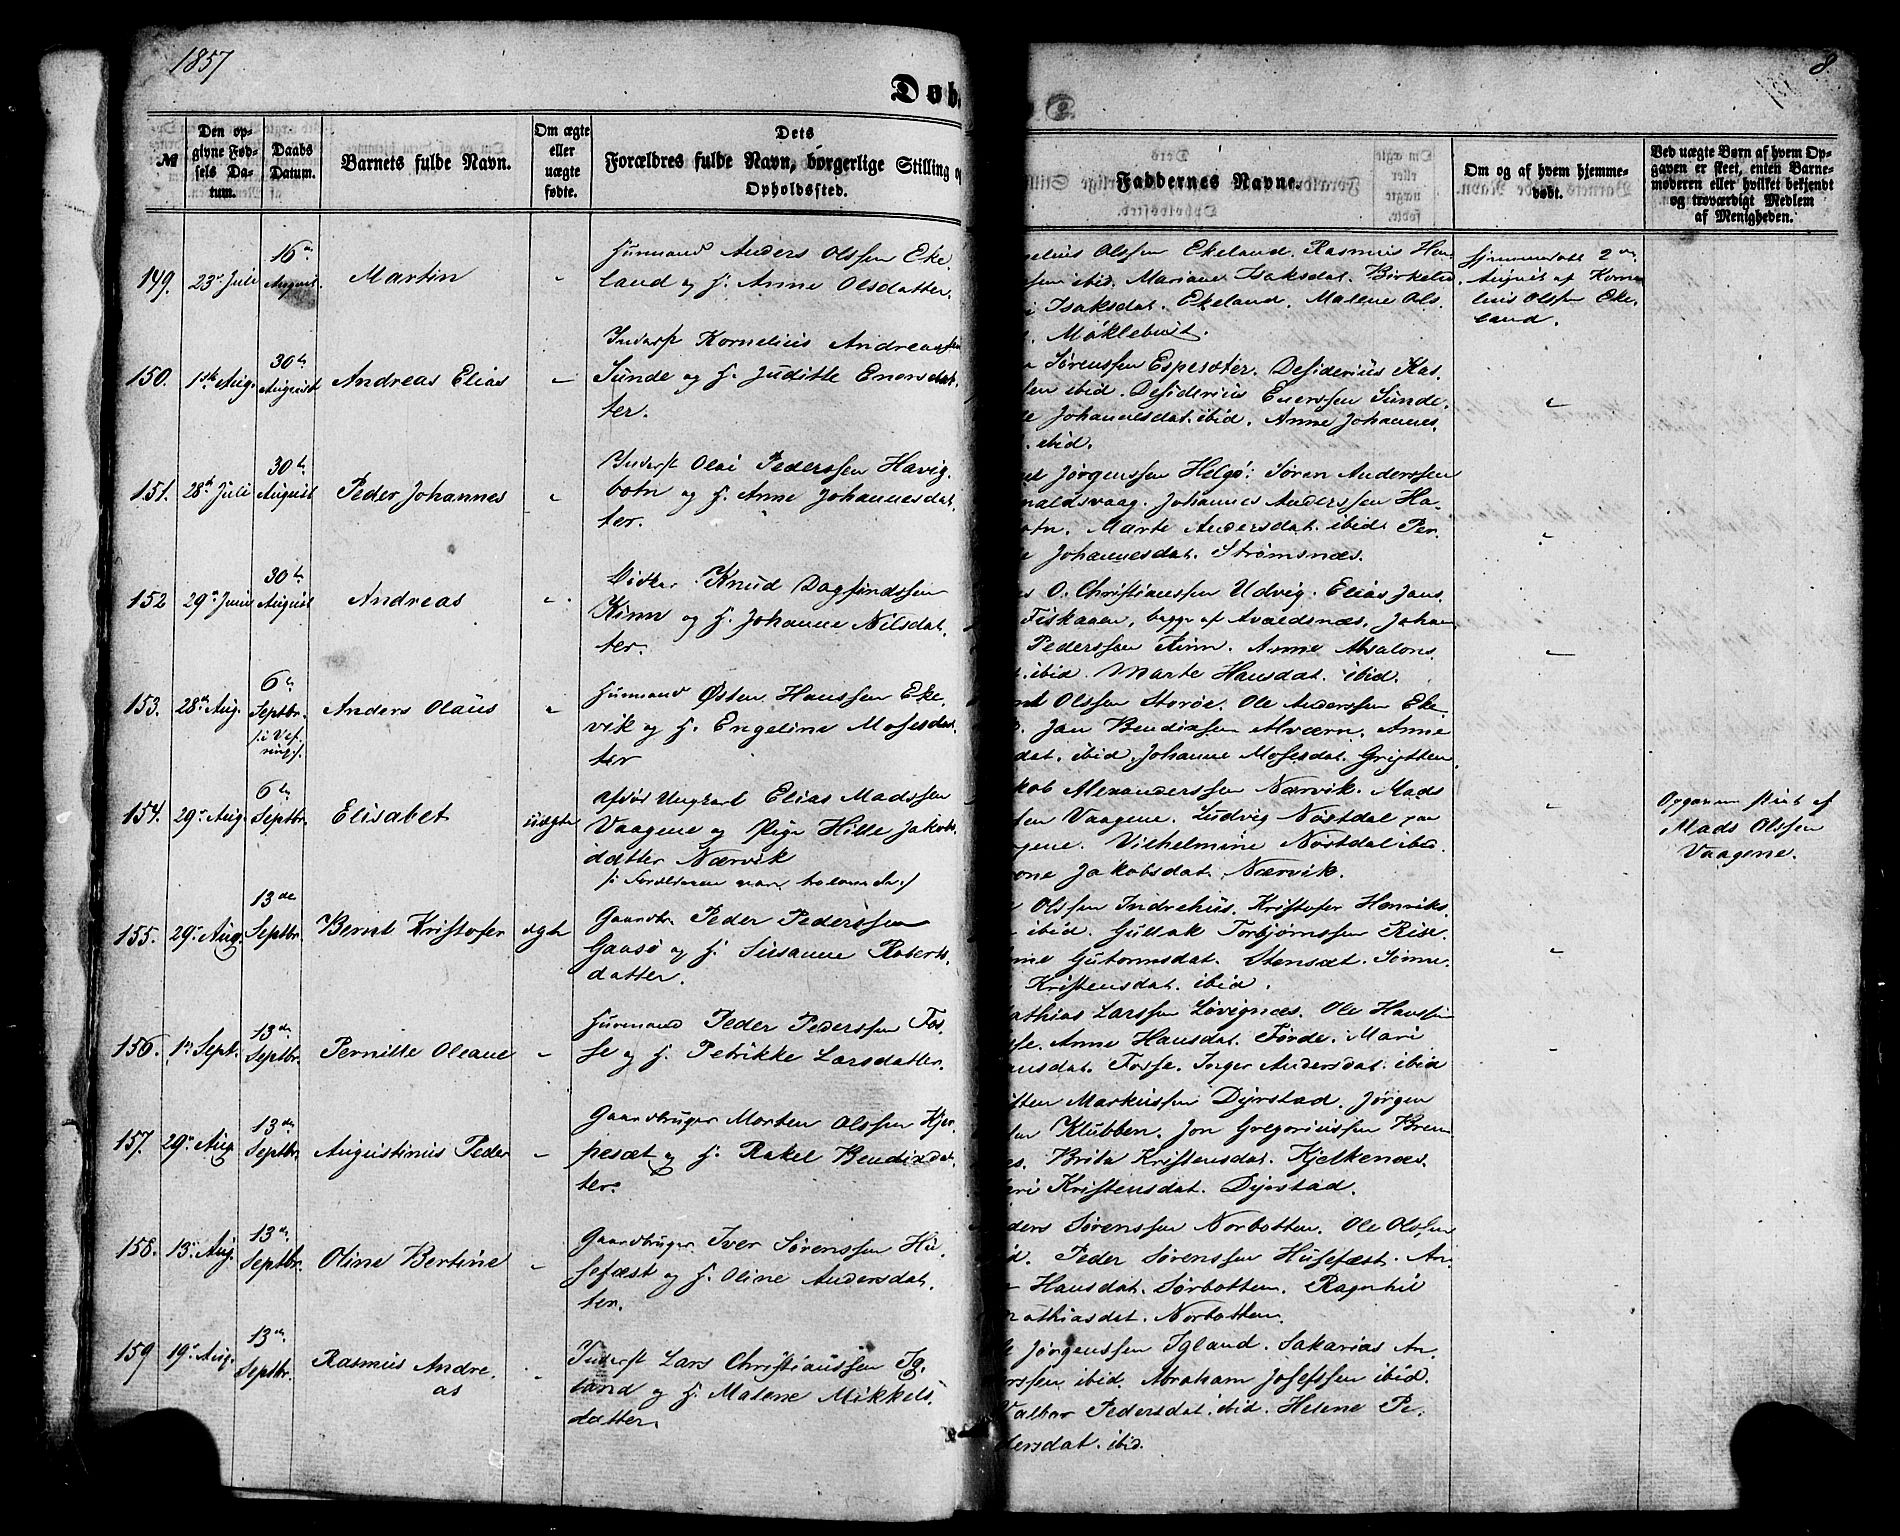 1857
8
Døb
№
Den op-
givne Fød-
sels Da-
tum.
Daabs
Datum.
Barnets fulde Navn.
Om ægte
eller
uægte
fødte.
Dets
Forældres fulde Navn, borgerlige Stilling og
Opholdssted.
Faddernes Navne.
Om og af hvem hjemme-
døbt.
Ved uægte Børn af hvem Op-
gaven er skeet, enten Barne-
moderen eller hvilket bekjendt
og troværdigt Medlem
af Menigheden.
149.
23 Juli
16
August
Martin
Huusmand Anders Olssen Eke-
land og H. Anne Olsdatter.
nelius Olssen Ekeland. Rasmus Han
sen ibid. Mariane Isaksdat. Birkeland
i Isaksdat. Ekeland. Malene Ols.
Møklebust.
Hjemmedøbt 2
August af Korne
lius Olssen Eke-
land.
150.
1 Aug.
30
August
Andreas Elias
Inderst Kornelius Andreassen
Sunde og H. Juditte Enersdat-
ter.
Sørenssen Espesæter. Desiderius Kas.
sen ibid. Desiderius Enerssen Sunde.
Johannesdat. ibid. Anne Johannes.
ibid.
151.
28 Juli
30
August
Peder Johannes
Inderst Olai Pederssen Havig-
botn og H. Anne Johannesdat-
ter.
Jørgenssen Helgø. Søren Anderssen
naldsvaag. Johannes Anderssen Ha-
otn. Marte Andersdat. ibid. Per
Johannesdat. Strømsnæs.
152
29 Juni
30
August
Andreas
Knud Dagfindssen
Kinn og H. Johanne Nilsdat-
ter.
O. Christianssen Udvig. Elias Jans.
Fiskaaen, begge af Avaldsnæs. Johan
Pederssen Kinn. Anne Absalons.
ibid. Marte Hansdat. ibid.
153.
28 Aug.
6
Septbr.
Anders Olaus
Huusmand Østen Hanssen Eke-
vik og H. Engeline Mosesdat-
ter
Olssen Storøe. Ole Anderssen Eke-
Jan Bendixsen Alværn. Anne
dat. ibid. Johanne Mosesdat. Grytten.
154.
29 Aug.
6
Septbr.
Elisabet
uægte
Ungkarl Elias Madssen
Vaagene og Pige Hille Jakobs
datter Nærvik
kob Alexanderssen Nærvik. Mads
sen Vaagene. Ludvig Nøstdal paa
gene. Vilhelmine Nøstdal ibid.
one Jakobsdat. Nærvik.
Opgaven skeet af
Mads Olssen
Vaagene.
155.
29 Aug.
13de
Septbr.
Bernt Kristofer
ægte
Gaardbr. Peder Pederssen
Gaasø og H. Susanne Roberts-
datter.
Olssen Indrehus. Kristofer Henriks.
ibid. Gullak Torbjørnssen Rise.
Gutormsdat. Stensæt. Sønne
Kristensdat. ibid.
156.
1 Sept.
13de
Septbr.
Pernille Oleane
Huusmand Peder Pederssen Fos-
se og H. Petrikke Larsdatter.
athias Larssen Løvignæs. Ole Hanssen
Anne Hansdat. Førde. Mari
ansdat. Fosse. Inger Andersdat. ibid
157.
29 Aug.
13de
Septbr.
Augustinus Peder
Gaardbruger Morten Olssen Hjor-
pesæt og H. Rakel Bendixdat-
ter.
ten Markussen Dyrstad. Jørgen
Klubben. Jon Gregoriussen Brem
es. Brita Kristensdat. Kjelkenæs.
Kristensdat. Dyrstad.
158.
13 Aug.
13de
Septbr.
Oline Bertine
Gaardbruger Iver Sørenssen Hu-
sefæst og H. Oline Andersdat-
ter.
ders Sørenssen Norbotten. Ole Olssen
id. Peder Sørenssen Husefæst. An-
Hansdat. Sørbotten. Ragnhil
athiasdat. Norbotten.
159
19 Aug.
13de
Septbr.
Rasmus Andre-
as
Inderst Lars Christianssen Ig-
land og H. Malene Mikkels-
datter.
Jørgenssen Igland. Sakarias An-
rssen ibid. Abraham Josefssen ibid.
Valbor Pedersdat. ibid. Helene Pe-
dersdat. ibid.